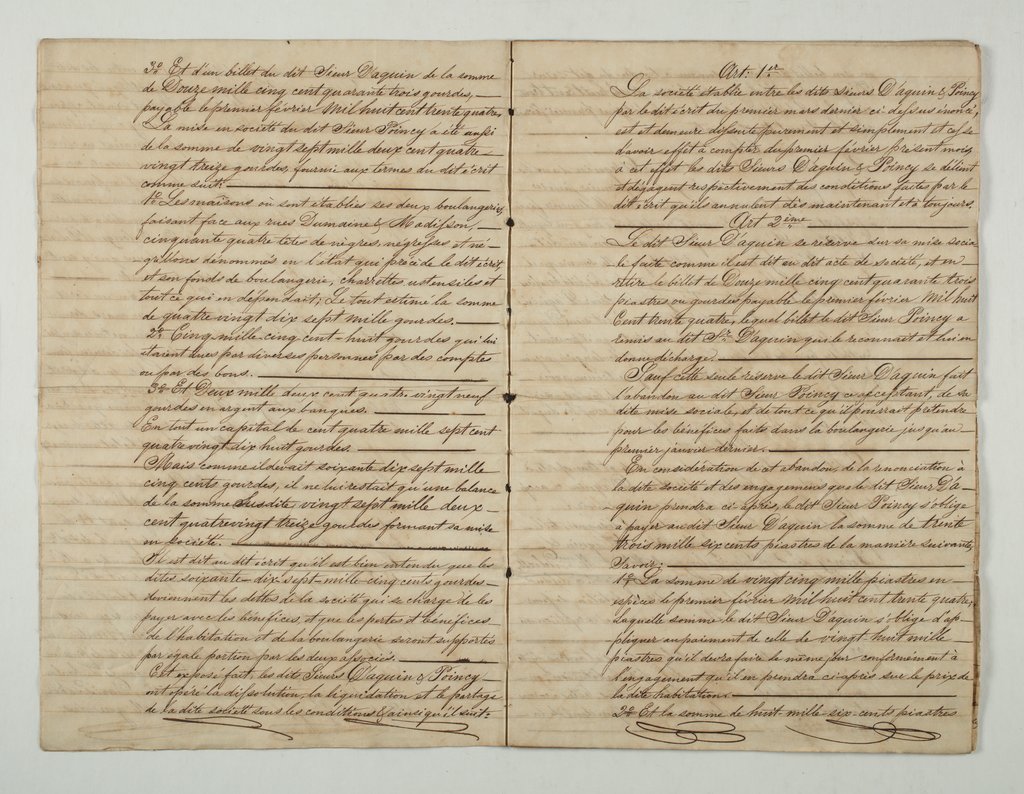 3º Et d'un billet du dit Sieur D'aquin de la somme
de Douze mille cinq cent quarante trois gourdes,
payable le premier février Mil huit cent trente quatre,
La mise en société du dit Sieur Poincy a été aussi
de la somme de vingt sept mille deux cent quatre
vingt treize gourdes, fournie aux termes du dit écrit
comme suit:
1º Les maisons où sont établies ses deux boulangeries,
faisant face aux rues Dumaine & Madisson,
cinquante quatre têtes de nègres, négresses et né-
grillons dénommés en l'état qui précède le dit écrit,
et son fonds de boulangerie, charrettes ustensiles et
tout ce qui en dépendait, Le tout estimé la somme
de quatre vingt dix sept mille gourdes.
2º Cinq mille cinq cent huit gourdes qui lui
étaient dues par diverses personnes par des comptes
ou par des bons.
3º Et Deux mille deux cent quatre vingt neuf
gourdes en argent aux banques.
En tout un capital de cent quatre mille sept cent
quatre vingt dix huit gourdes.
Mais comme il devait soixante dix sept mille
cinq cents gourdes, il ne lui restait qu'une balance
de la somme susdite vingt sept mille deux
cent quatre vingt treize gourdes formant sa mise
en société.
Il est dit au dit écrit qu'il est bien entendu que les
dites soixante-dix-sept-mille cinq cents gourdes
deviennent les dettes de la société qui se charge de les
payer avec les bénéfices et que les pertes et bénéfices
de l'habitation et de la boulangerie seront supportés
par égale portion par les deux associés.
Cet exposé fait, les dits Sieurs D'aquin & Poincy
ont opéré la dissolution, la liquidation et le partage
de la dite société sous les conditions & ainsi qu'il suit:
Art: 1er
La société établie entre les dits Sieurs D'aquin & Poincy
par le dit écrit du premier mars dernier ci-dessus énoncé,
est et demeure dissoute purement et simplement et cesse
d'avoir effet à compter du premier février présent mois,
à cet effet les dits Sieurs D'aquin & Poincy se délient
et dégagent respectivement des conditions faites par le
dit écrit qu'ils annulent dès maintenant et à toujours.
Art 2ème
Le dit Sieur D'aquin se réserve sur sa mise socia-
le faite comme il est dit au dit acte de société, et en
retire le billet de Douze mille cinq cent quarante trois
piastres ou gourdes payable le premier février Mil huit
Cent trente quatre, lequel billet le dit Sieur Poincy a
remis au dit Sr. D'aquin qui le reconnait et lui en
donne décharge.
Sauf cette seule réserve le dit Sieur D'aquin fait
l'abandon au dit Sieur Poincy ce acceptant, de sa
dite mise sociale, et de tout ce qu'il pourrait prétendre
pour les bénéfices faits dans la boulangerie jusqu'au
premier janvier dernier.
En considération de cet abandon, de la renonciation à
la dite société et des engagemens que le dit Sieur D'a-
quin prendra ci-après, le dit Sieur Poincy s'oblige
à payer au dit Sieur D'aquin la somme de trente
trois mille six cents piastres de la manière suivante,
Savoir:
1º La somme de vingt cinq mille piastres en
espèces le premier février Mil huit cent trente quatre,
Laquelle somme le dit Sieur D'aquin s'oblige d'ap-
pliquer au paiment de celle de vingt huit mille
piastres qu'il devra faire le même jour conformément à
l'engagement qu'il en prendra ci-après sur le prix de
la dite habitation.
2º Et la somme de huit mille six cents piastres